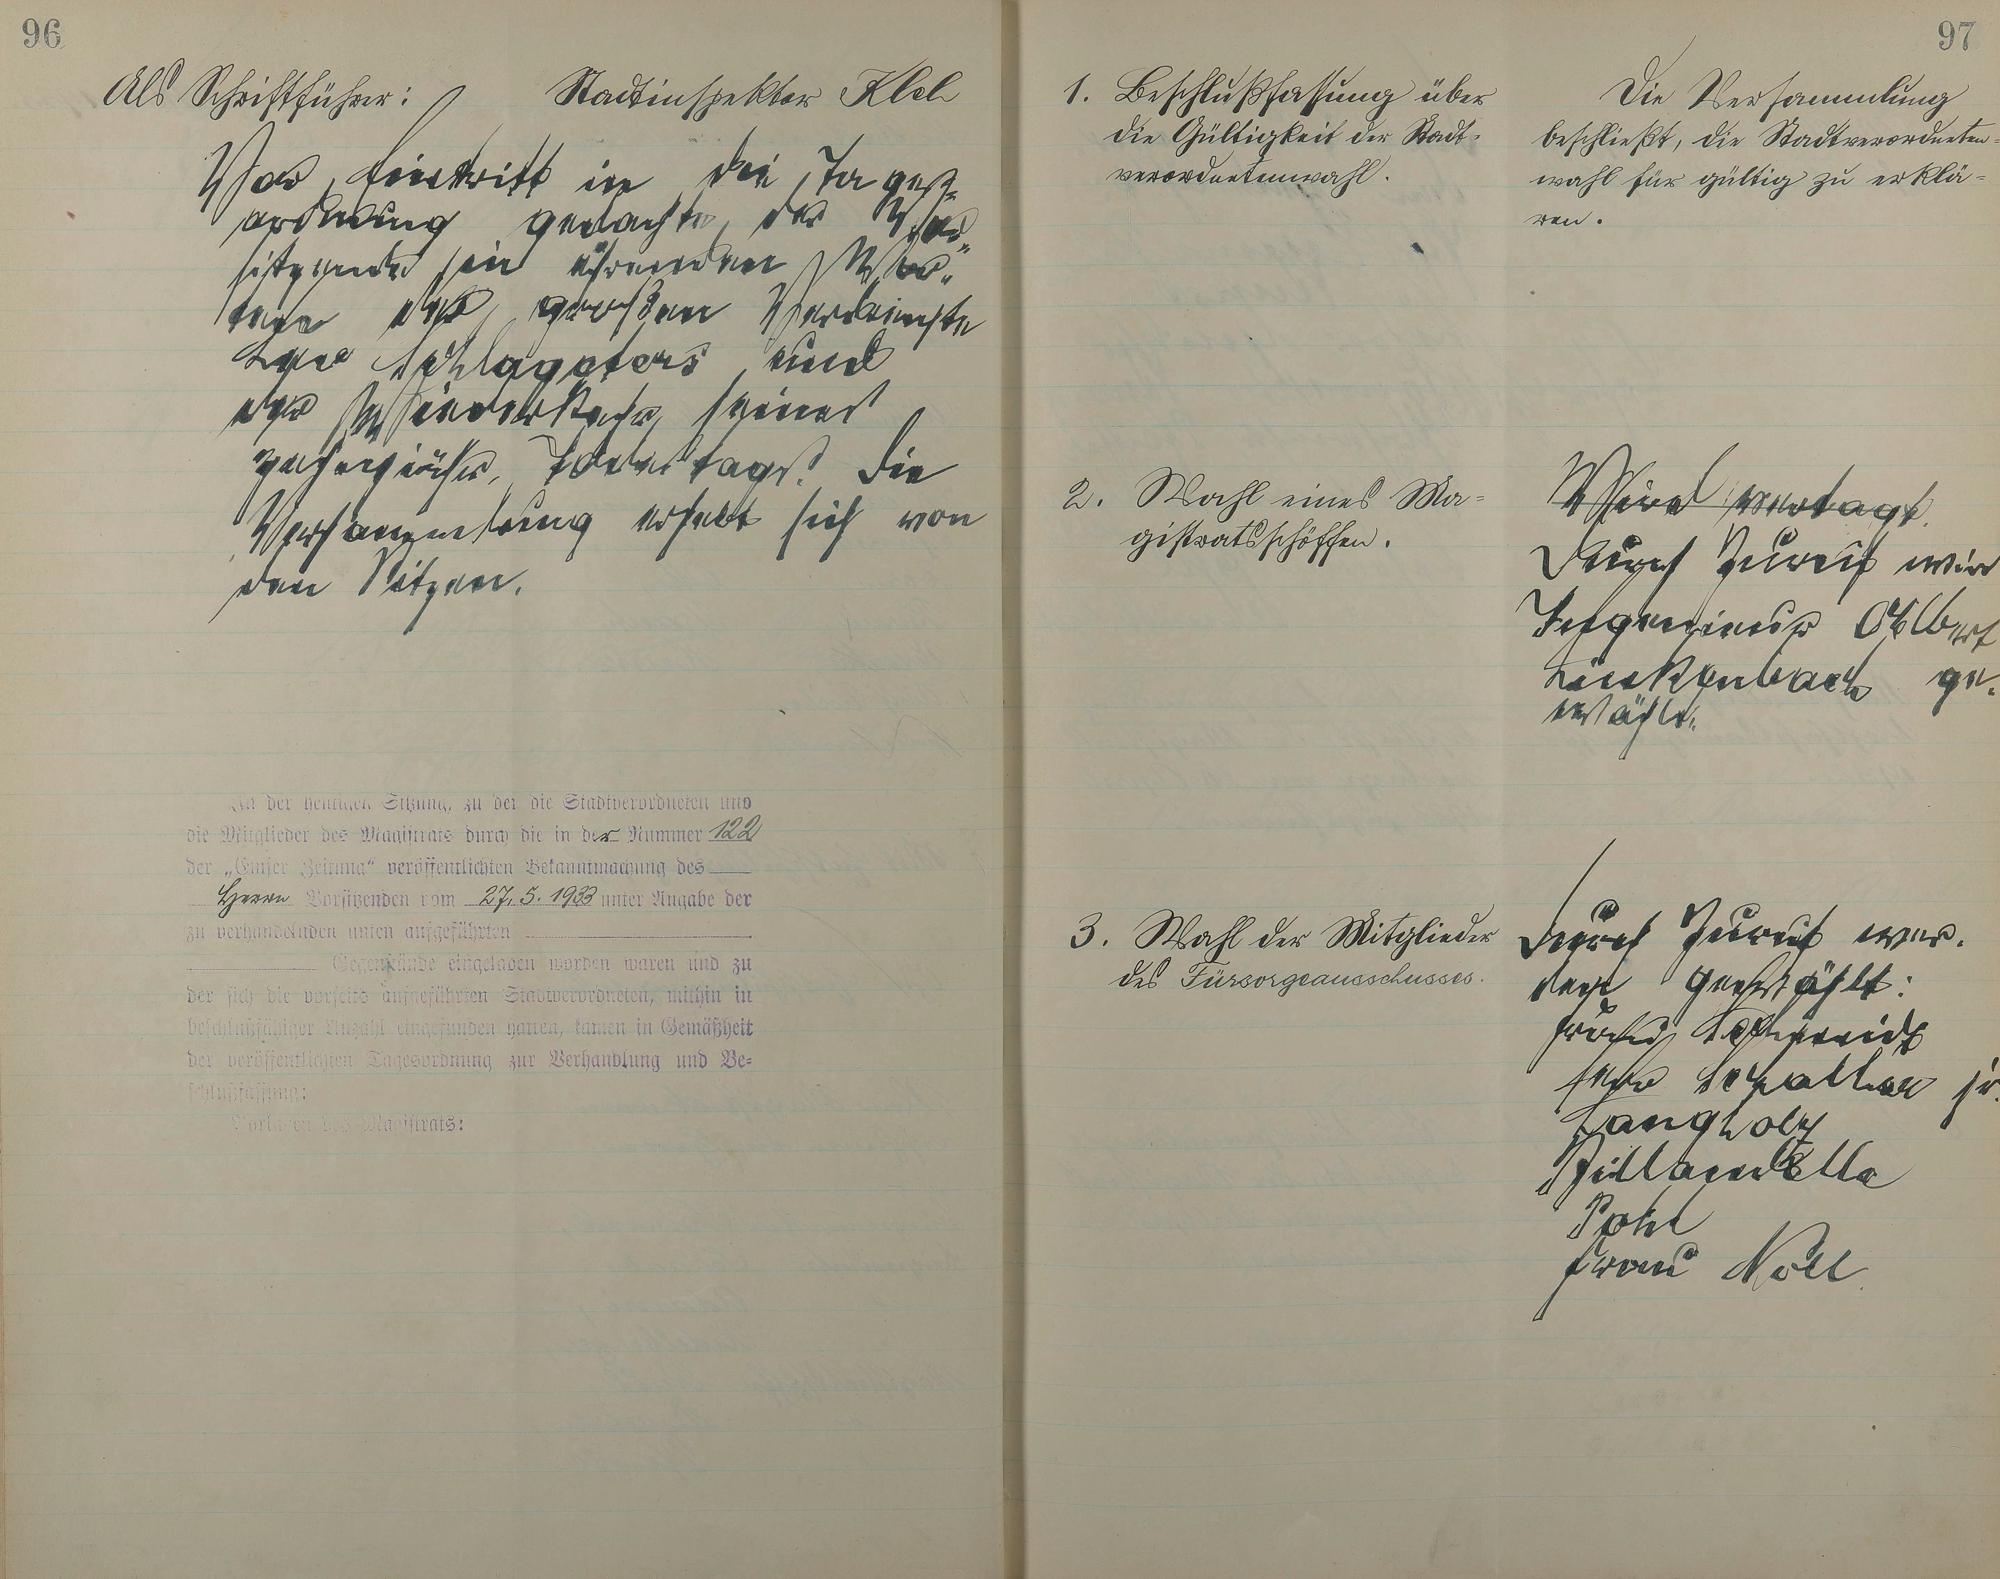 96
Als Schriftführer: Stadtinspektor Klel
Vor Eintritt in die Tages-
ordnung gedachte der Vor-
sitzende in ehrenden Wor-
ten der großen Verdienste
Leo Schlageters und
der Wiederkehr seines
zehnjähr. Todestags. Die
Versammlung erhebt sich von
den Sitzen.
In der heutigen Sitzung, zu der die Stadtverordneten und
die Mitglieder des Magistrats durch die in der Nummer 122
der „Emser Zeitung“ veröffentlichten Bekanntmachung des
Herrn Vorsitzenden vom 27.5.1933 unter Angabe der
zu verhandelnden unten aufgeführten
Gegenstände eingeladen worden waren und zu
der sich die vorseits aufgeführten Stadtverordneten, mithin in
beschlußfähiger Anzahl eingefunden hatten, kamen in Gemäßheit
der veröffentlichten Tagesordnung zur Verhandlung und Be-
schlußfassung:
Vorlagen des Magistrats:
97
1. Beschlußfassung über
die Gültigkeit der Stadt-
verordnetenwahl.
Die Versammlung
beschließt, die Stadtverordneten-
wahl für gültig zu erklä-
ren.
2. Wahl eines Ma-
gistratsschöffen.
Wird vertagt.
Durch Zuruf wird
Ingenieur Albert
Linkenbach ge-
wählt.
3. Wahl der Mitglieder
des Fürsorgeausschusses.
Durch Zuruf wer-
den gewählt:
Schmidt
jr.
Langholz
Pohl
Frau Noll